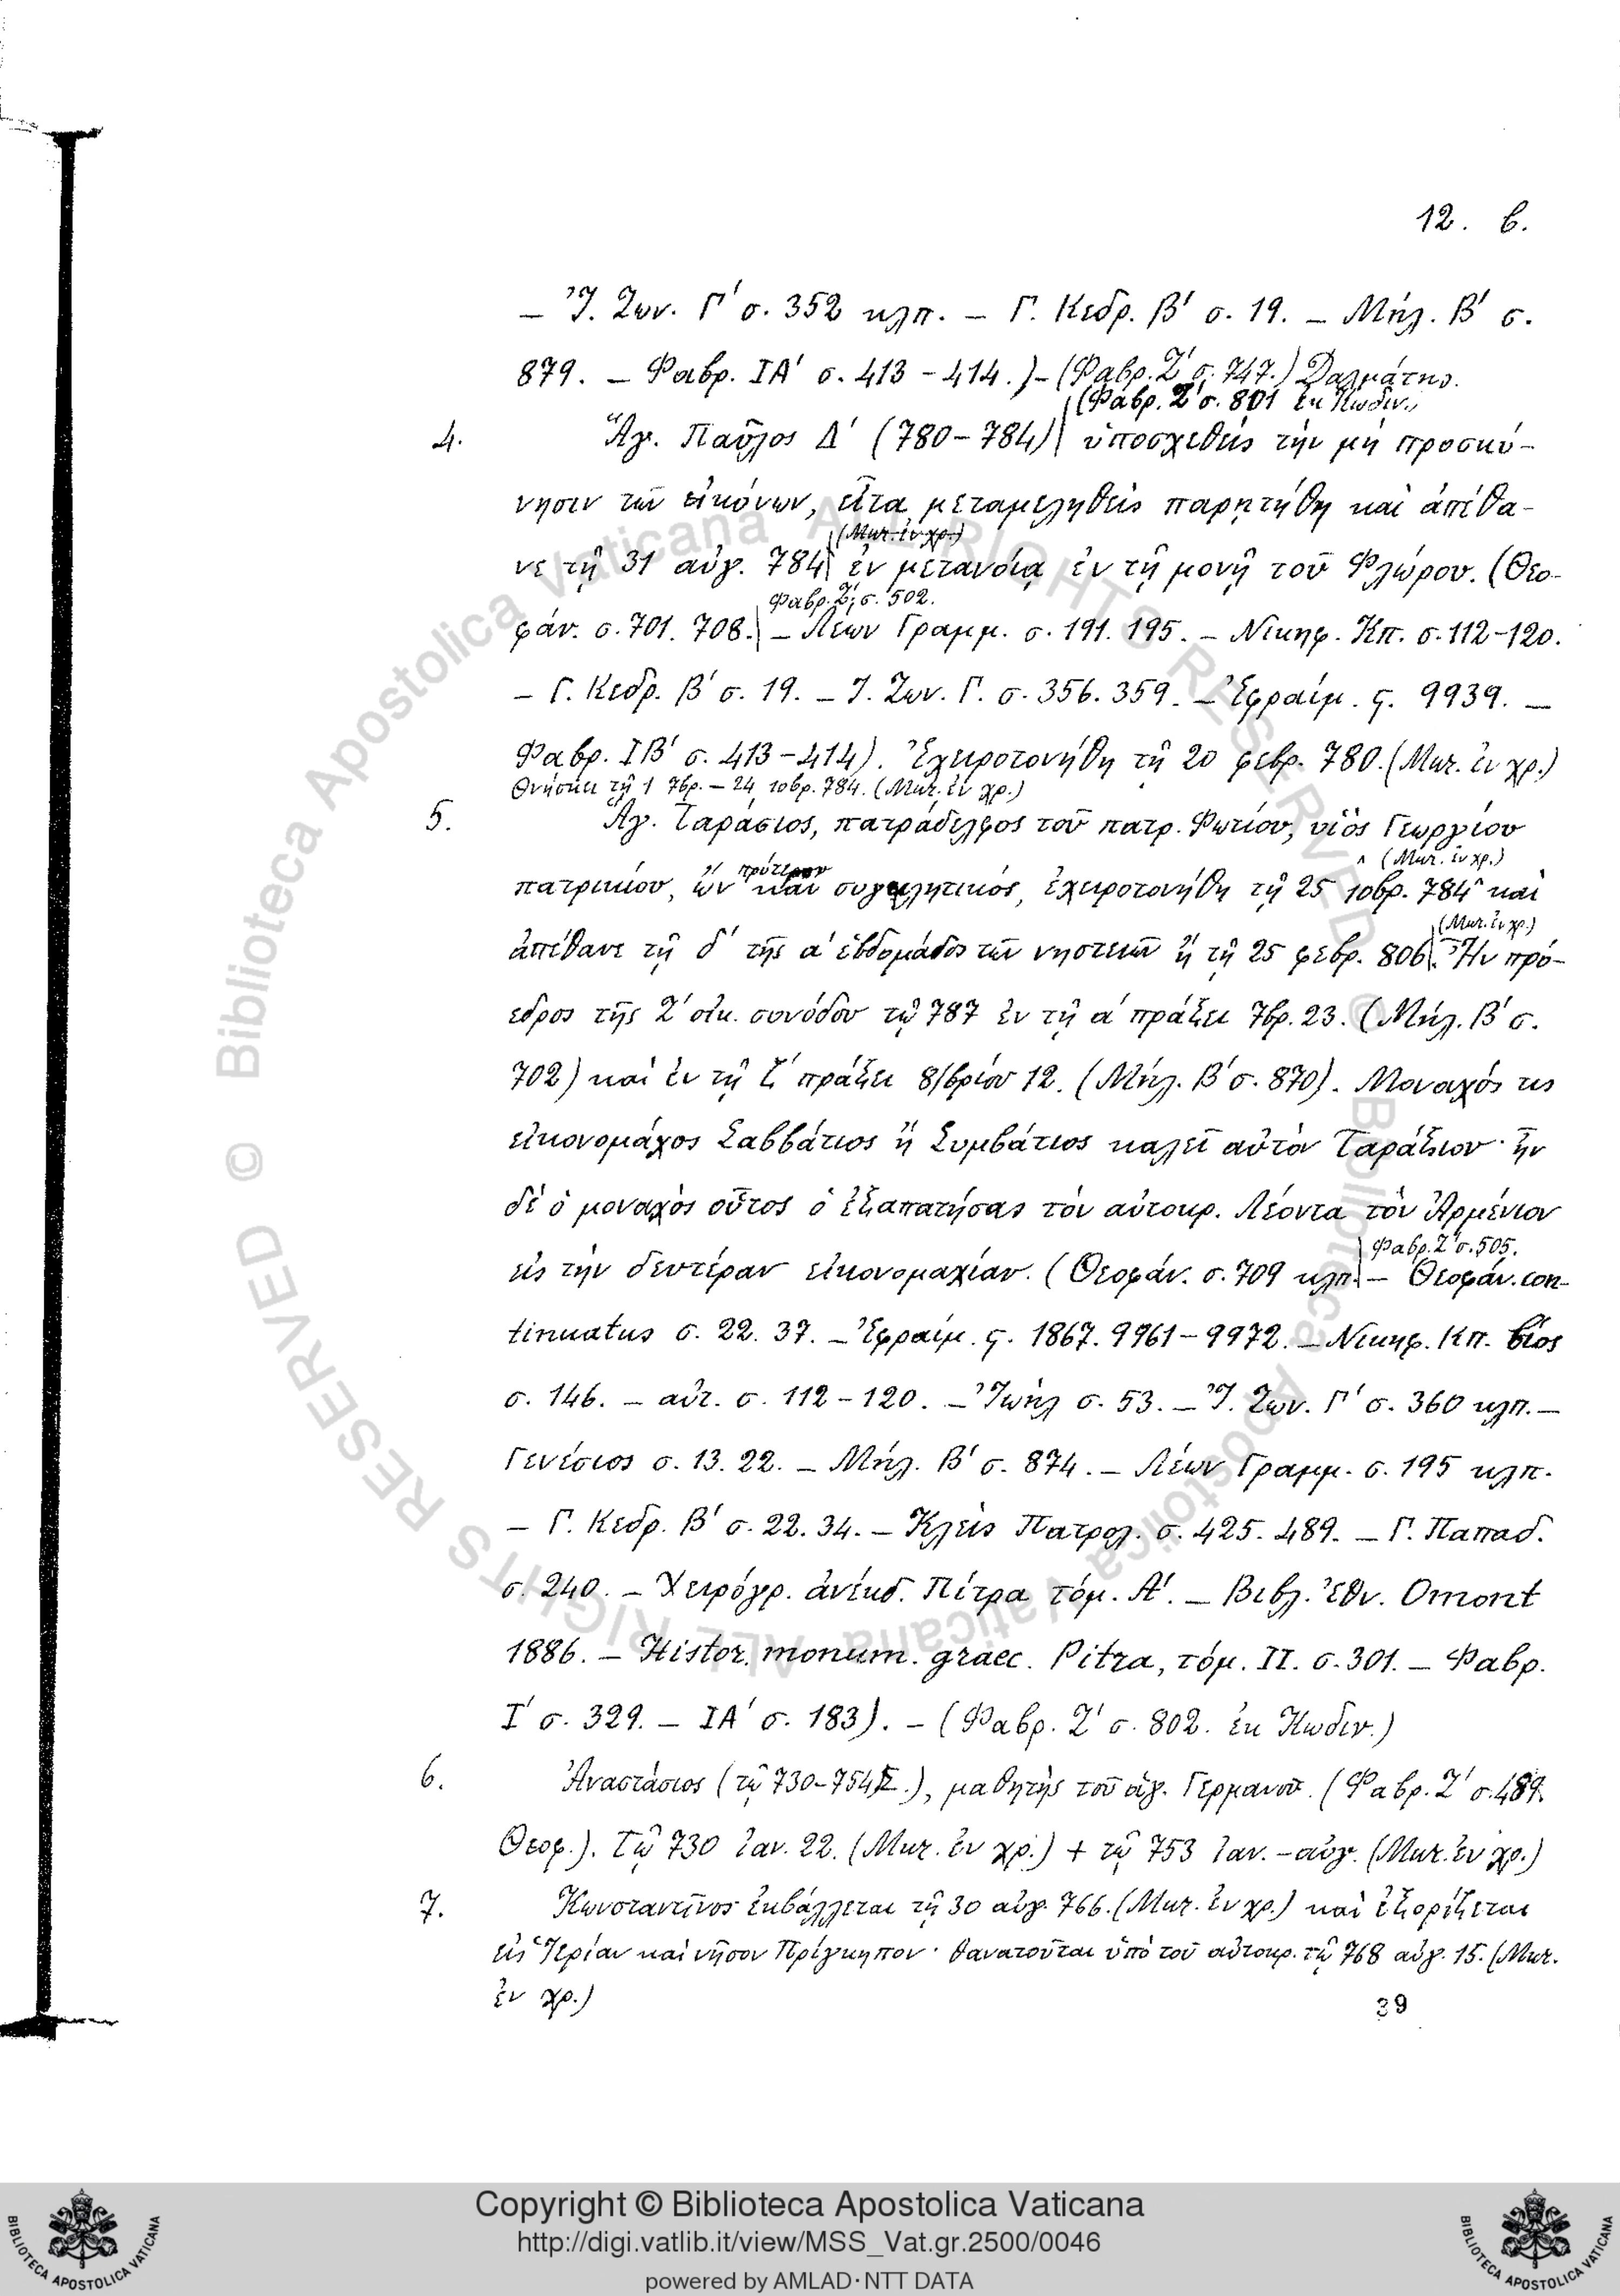 12. β.
– Ἰ. Ζων. Γ΄ σ. 352 κλπ. – Γ. Κεδρ. Β΄ σ. 19. – Μήλ. Β΄ σ.
879. – Φαβρ. ΙΑ΄ σ. 413 – 414.) – (Φαβρ. Ζ΄ σ. 747.) Δαλμάτης.
(Φαβρ. Ζ΄ σ. 801 ἐκ Κωδιν.)
4. Ἅγ. Παῦλος Δ΄ (780 – 784) ὑποσχεθεὶς τὴν μὴ προσκύ-
νησιν τῶν εἰκόνων, εἶτα μεταμεληθεὶς παρῃτήθη καὶ ἀπέθα-
(Ματ. ἐν χρ.)
νε τῇ 31 αὐγ. 784 ἐν μετανοίᾳ ἐν τῇ μονῇ τοῦ Φλώρου. (Θεο-
Φαβρ. Ζ΄, σ. 502.
φάν. σ. 701. 708. – Λέων Γραμμ. σ. 191. 195. – Νικηφ. Κπ. σ. 112–120.
– Γ. Κεδρ. Β΄ σ. 19. – Ἰ. Ζων. Γ. σ. 356. 359. – Ἐφραίμ. ς. 9939. –
Φαβρ. ΙΒ΄ σ. 413 – 414). Ἐχειροτονήθη τῇ 20 φεβρ. 780. (Ματ. ἐν χρ.)
Θνήσκει τῇ 1 7βρ. – 24 10βρ. 784. (Ματ. ἐν χρ.)
5. Ἅγ. Ταράσιος, πατράδελφος τοῦ πατρ. Φωτίου, υἱὸς Γεωργίου
πρότερον ^ (Ματ. ἐν χρ.)
πατρικίου, ὢν καὶ συγκλητικός, ἐχειροτονήθη τῇ 25 10βρ. 784 καὶ
(Ματ. ἐν χρ.)
ἀπέθανε τῇ δ΄ τῆς α΄ ἑβδομάδος τῶν νηστειῶν ἢ τῇ 25 φεβρ. 806. Ἦν πρό-
εδρος τῆς Ζ΄ οἰκ. συνόδου τῷ 787 ἐν τῇ α΄ πράξει 7βρ. 23. (Μήλ. Β΄ σ.
702) καὶ ἐν τῇ ζ΄ πράξει 8/βρίου 12. (Μήλ. Β΄ σ. 870). Μοναχός τις
εἰκονομάχος Σαββάτιος ἢ Συμβάτιος καλεῖ αὐτὸν Ταράξιον· ἦν
δὲ ὁ μοναχὸς οὗτος ὁ ἐξαπατήσας τὸν αὐτοκρ. Λέοντα τὸν Ἀρμένιον
Φαβρ. Ζ΄ σ. 505.
εἰς τὴν δευτέραν εἰκονομαχίαν. (Θεοφάν. σ. 709 κλπ. – Θεοφάν. con-
tinuatus σ. 22. 37. – Ἐφραίμ. ς. 1867. 9961 – 9972. – Νικηφ. Κπ. βίος
σ. 146. – αὐτ. σ. 112 – 120. – Ἰωὴλ σ. 53. – Ἰ. Ζων. Γ΄ σ. 360 κλπ. –
Γενέσιος σ. 13. 22. – Μήλ. Β΄ σ. 874. – Λέων Γραμμ. σ. 195 κλπ.
– Γ. Κεδρ. Β΄ σ. 22. 34. – Κλεὶς Πατρολ. σ. 425. 489. – Γ. Παπαδ.
σ. 240. – Χειρόγρ. ἀνέκδ. Πίτρα τόμ. Α΄. – Βιβλ. Ἐθν. Omont
1886. – Histor. monum. graec. Pitra, τόμ. II. σ. 301. – Φαβρ.
Ι΄ σ. 329. – ΙΑ΄ σ. 183). – (Φαβρ. Ζ΄ σ. 802. ἐκ Κωδιν.)
6. Ἀναστάσιος (τῷ 730 – 754.), μαθητὴς τοῦ ἁγ. Γερμανοῦ. (Φαβρ. Ζ΄ σ. 489.
Θεοφ.). Τῷ 730 ἰαν. 22. (Ματ. ἐν χρ.) + τῷ 753 ἰαν. – αὐγ. (Ματ. ἐν χρ.)
7. Κωνσταντῖνος ἐκβάλλεται τῇ 30 αὐγ. 766. (Ματ. ἐν χρ.) καὶ ἐξορίζεται
εἰς Ἱερίαν καὶ νῆσον Πρίγκηπον· θανατοῦται ὑπὸ τοῦ αὐτοκρ. τῷ 768 αὐγ. 15. (Ματ.
ἐν χρ.)
39
© Biblioteca Apostolica Vaticana ALL RIGHTS RESERVED
© Biblioteca Apostolica Vaticana ALL RIGHTS RESERVED
Copyright © Biblioteca Apostolica Vaticana
http://digi.vatlib.it/view/MSS_Vat.gr.2500/0046
powered by AMLAD·NTT DATA
BIBLIOTECA APOSTOLICA VATICANA
BIBLIOTECA APOSTOLICA VATICANA